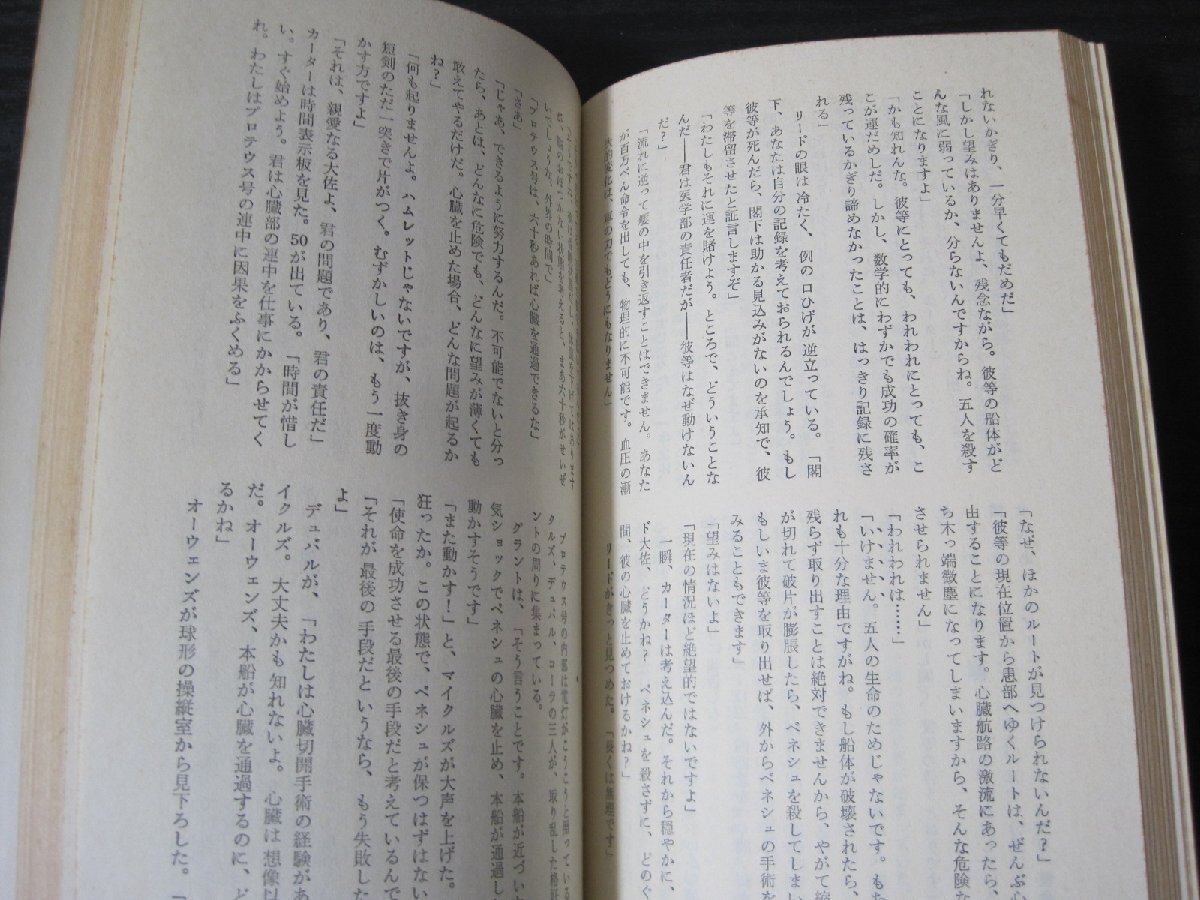 れないかぎり、一分早くてもだめだ」
「しかし望みはありませんよ、残念ながら。彼等の船体がど
んな風に弱っているか、分らないんですからね。五人を殺す
ことになりますよ」
「かも知れんな。彼等にとっても、われわれにとっても、こ
こが運だめしだ。しかし、数学的にわずかでも成功の確率が
残っているかぎり諦めなかったことは、はっきり記録に残さ
れる」
リードの眼は冷たく、例の口ひげが逆立っている。「閣
下、あなたは自分の記録を考えておられるんでしょう。もし
彼等が死んだら、閣下は助かる見込みがないのを承知で、彼
等を滞留させたと証言しますぞ」
「わたしもそれに運を賭けよう。ところで、どういうことな
んだ――君は医学部の責任者だが――彼等はなぜ動けないん
だ?」
「流れに逆って髪の中を引き返すことはできません。あなた
が百万べん命令を出しても、物理的に不可能です。血圧の漸
「なぜ、ほかのルートが見つけられないんだ?」
「彼等の現在位置から患部へゆくルートは、ぜんぶ心
由することになります。心臓航路の激流にあったら、
ち木っ端微塵になってしまいますから、そんな危険な
させられません」
「われわれは……」
「いけません。五人の生命のためじゃないです。もち
れも十分な理由ですがね。もし船体が破壊されたら、
残らず取り出すことは絶対できませんから、やがて縮
が切れて破片が膨脹したら、ベネシュを殺してしまい
もしいま彼等を取り出せば、外からベネシュの手術を
みることもできます」
「望みはないよ」
「現在の情況ほど絶望的ではないですよ」
一瞬、カーターは考え込んだ。それから穏やかに、
ド大佐、どうかね? ベネシュを殺さずに、どのぐ
間、彼の心臓を止めておけるかね?」
リードがきっと見つめた。「長くは無理です」
「プロテウス号は、六十秒あれば心臓を通過できるな」
「さあ」
「じゃあ、できるように努力するんだ。不可能でないと分っ
たら、あとは、どんなに危険でも、どんなに望みが薄くても
敢えてやるだけだ。心臓を止めた場合、どんな問題が起るか
ね?」
「何も起りませんよ。ハムレットじゃないですが、抜き身の
短剣のただ一突きで片がつく。むずかしいのは、もう一度動
かす方ですよ」
「それは、親愛なる大佐よ、君の問題であり、君の責任だ」
カーターは時間表示板を見た。50が出ている。「時間が惜し
い。すぐ始めよう。君は心臓部の連中を仕事にかからせてく
れ。わたしはプロテウス号の連中に因果をふくめる」
プロテウス号の内部は電灯がこうこうと照っている
クルズ、デュバル、コーラの三人が、取り乱した格好
ントの周りに集まっている。
グラントは、「そう言うことです。本船が近づい
気ショックでベネシュの心臓を止め、本船が通過し
動かすそうです」
「また動かす!」と、マイクルズが大声を上げた。
狂ったか。この状態で、ベネシュが保つはずはない
「使命を成功させる最後の手段だと考えているんで
「それが最後の手段だというなら、もう失敗した
よ」
デュバルが、「わたしは心臓切開手術の経験があ
イクルズ。大丈夫かも知れないよ。心臓は想像以
だ。オーウェンズ、本船が心臓を通過するのに、ど
るかね」
オーウェンズが球形の操縦室から見下ろした。「